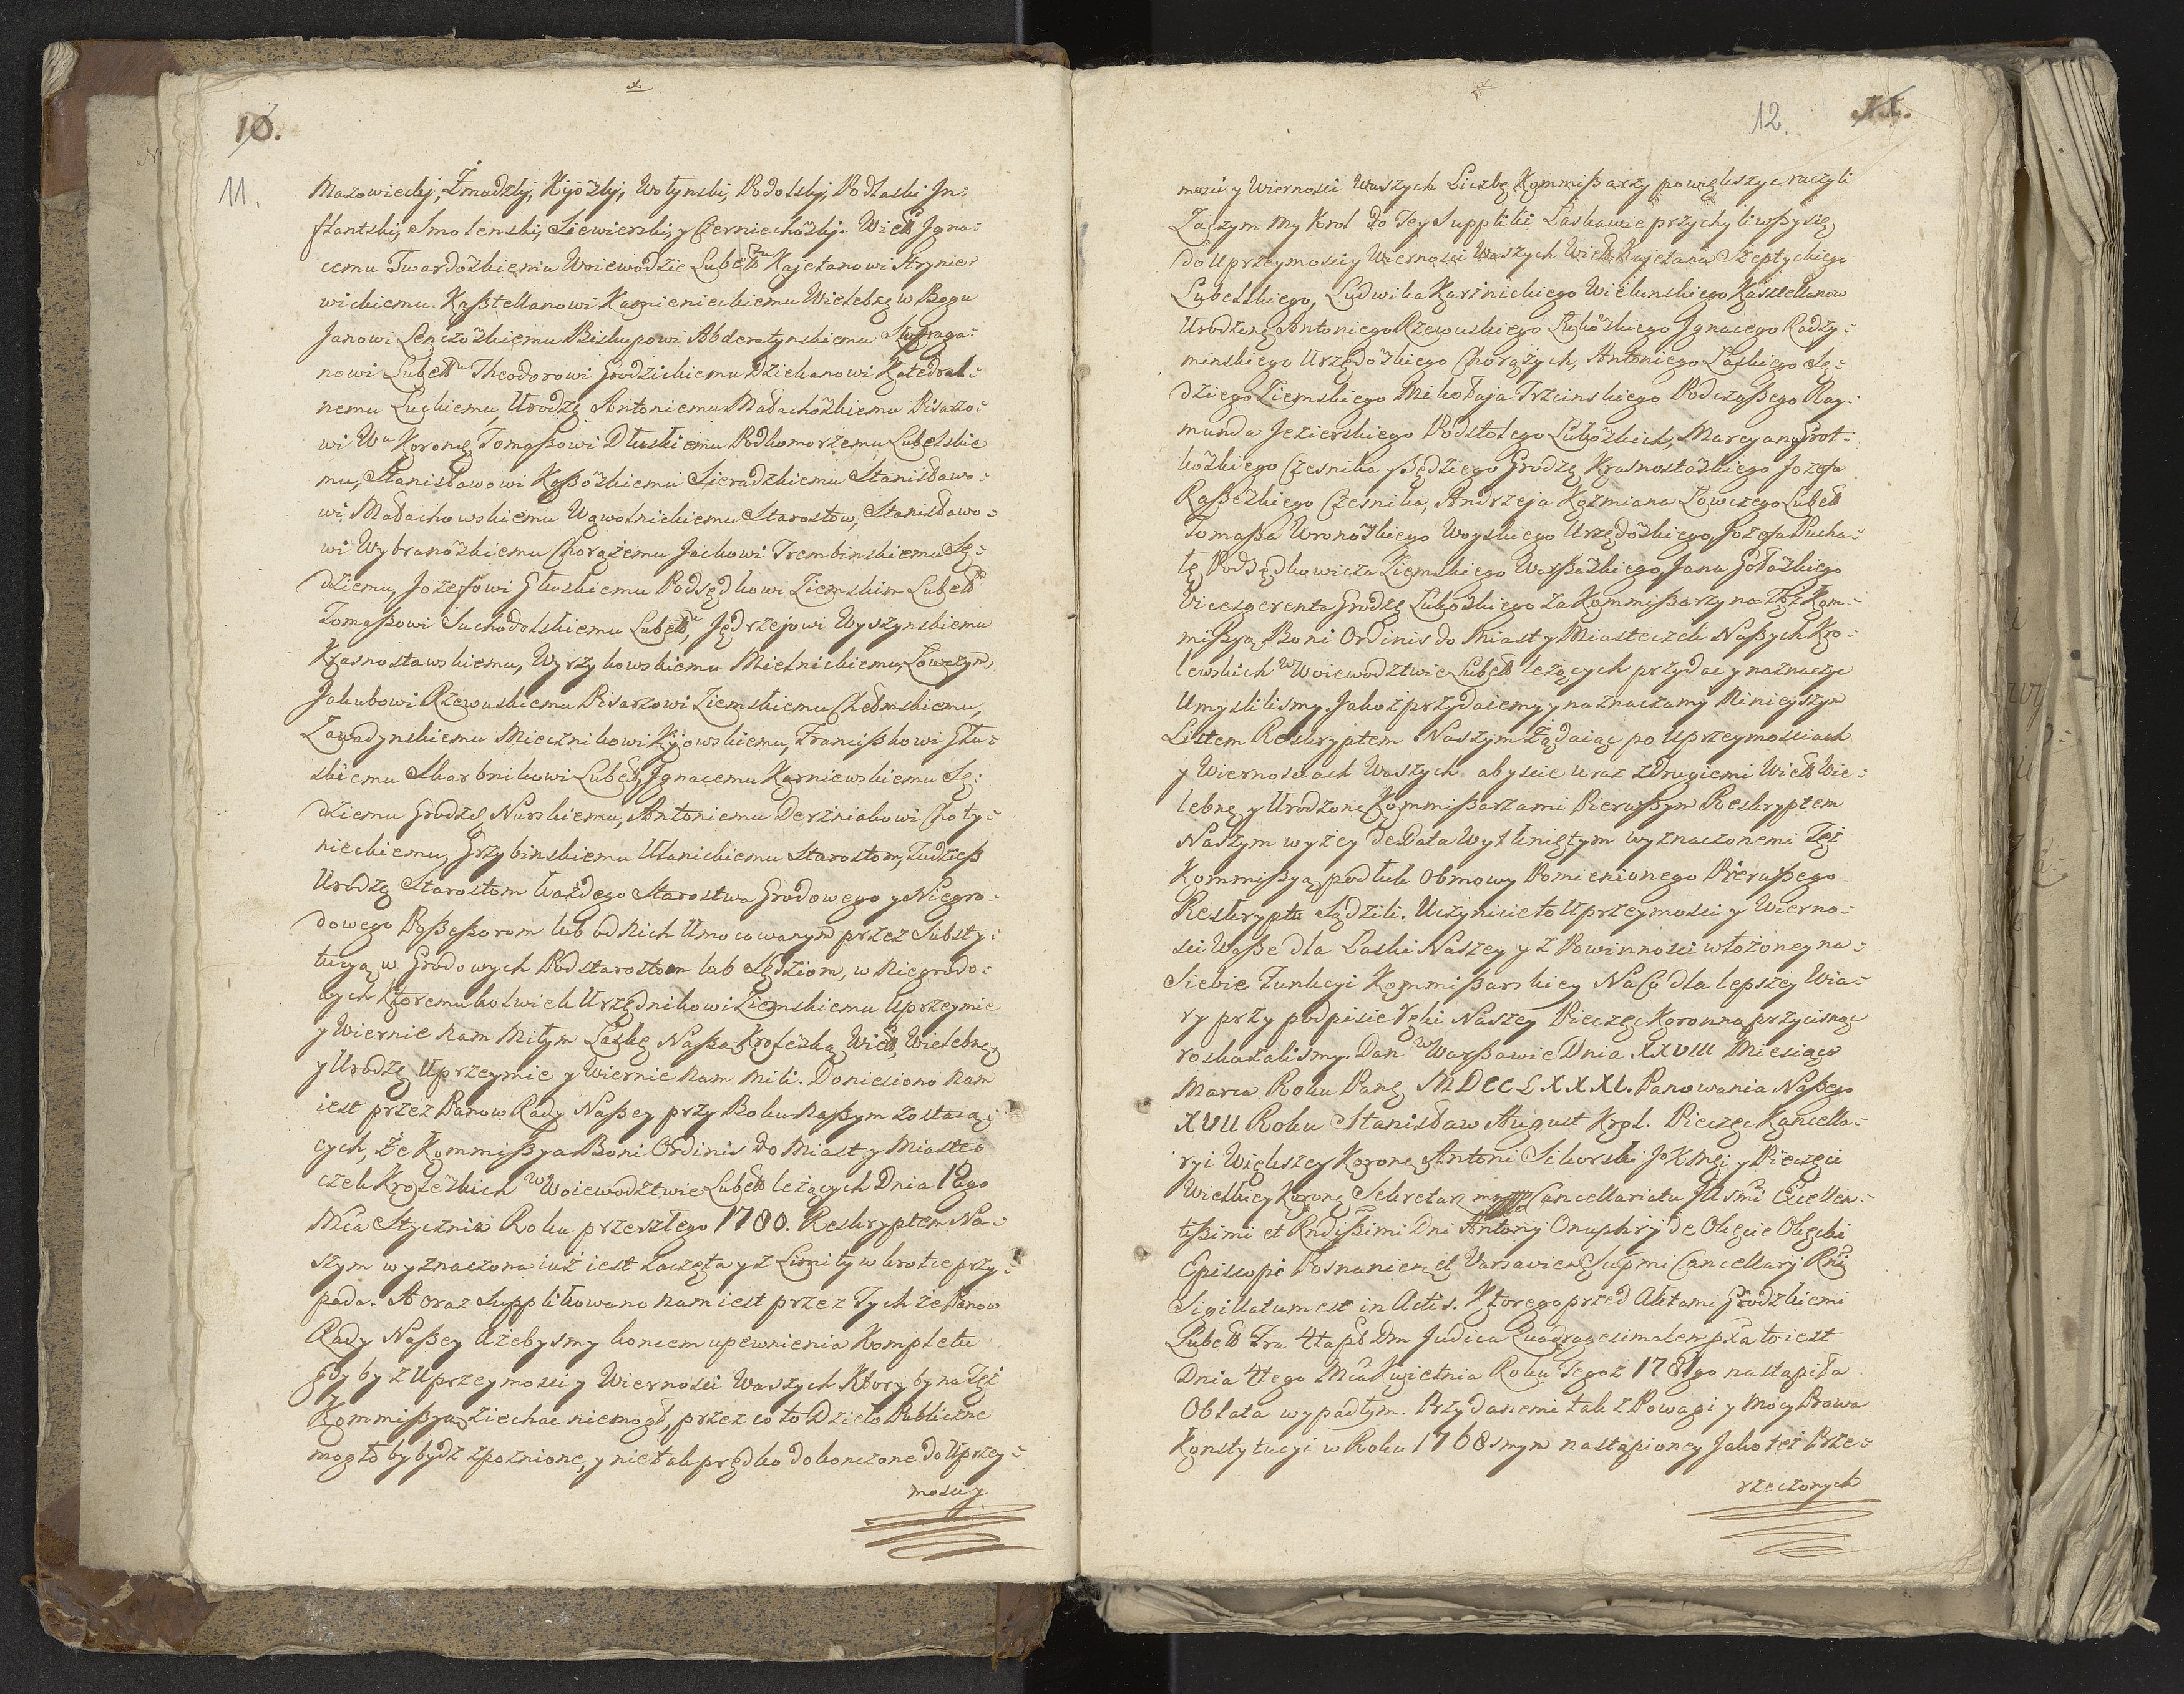 10.
11.
Mazowiecky, Żmudzky, Kijözky, Wołynski, Podolsky, Podlaski Jn:
flantski, Smolenski, Siewierski, y Czerniechözky. Wielk Jgna:
cemu Twardözkiemu Woiewodzie Lubelk Kajetanowi Hrynie:
wickiemu Kaßtellanowi Kamienieckiemu Wielebnę w Bogu
Janowi Lenczözkiemu Biskupowi Abderatynskiemu Suffraga:
nowi Lubelk Theodorowi Grodzickiemu Dziekanowi Katedral:
nemu Luckiemu, Urodzę Antoniemu Małachözkiemu Pisarzo:
wi Wu Koronę, Tomaßowi Dłuskiemu Podkomorzemu Lubelskie
mu, Stanisławowi Koßözkiemu Sieradzkiemu Stanisławo:
wi Małachowskiemu Wąwolnickiemu Starostöw, Stanisławo:
wi Wybranözkiemu Chorążemu Jackowi Trembinskiemu Sę:
dziemu, Jozefowi Głuskiemu Podsędkowi Ziemskim Lubelk
Tomaßowi Suchodolskiemu Lubelk, Jędrzejowi Wyszynskiemu
Krasnostawskiemu, Wyrzykowskiemu Mielnickiemu, Łowczym,
Jakubowi Rzewuskiemu Pisarzowi Ziemskiemu Chełmskiemu,
Zawadynskiemu Miecznikowi Kijowskiemu, Franciszkowi Głu:
skiemu Skarbnikowi Lubelk, Jgnacemu Karniewskiemu Sę:
dziemu Grodzę Nurskiemu, Antoniemu Derżniakowi Choty:
nieckiemu, Grzybinskiemu Ulanickiemu Starostom, Tudzieß
Urodzę Starostom każdego Starostwa Grodowego y Niegro:
dowego Poßeßorom lub od Nich Umocowanym przez Substy:
tucyą w Grodowych Podstarostom lub Sędziom, w Niegrodo:
wych ktoremukolwiek Urzędnikowi Ziemskiemu Uprzeymie
y Wiernie Nam Miłym Łaskę Naßą Krolezką Wielk, Wielebnę
y Urodzę Uprzeymie y Wiernie Nam Mili. Doniesiono Nam
iest przez Panow Rady Naßey przy Boku Naßym zostaią:
cych, że Kommißya Boni Ordinis do Miast y Miaste:
czek Krolezkich w Woiewodztwie Lubelk leżących Dnia 18go
Mca Stycznia Roku przeszłego 1780. Reskryptem Na:
szym wyznaczona iuż iest zaczęta y z Limity wkrotce przy:
pada. A oraz Supplikowano nam iest przez Tychże Panow
Rady Naßey Ażebysmy koncem upewnienia Kompletu
gdyby z Uprzeymosci y Wiernosci Waszych Ktory by na Tęż
Kommißyą ziechac niemogł, przez co to Dzieło Publiczne
mogłoby bydź zpoźnione, y nie tak prędko dokonczone do Uprzey:
mosci y
12.
11.
mosci y Wiernosci Waszych Liczbę Kommißarzy powiększyc raczyli
Zaczym My Krol do Tey Suppliki Łaskawie przychyliwßy się
do Uprzeymosci y Wiernosci Waszych Wielk Kajetana Szeptyckiego
Lubelskiego, Ludwika Karśnickiego Wielunskiego Kasztellanow
Urodzonę Antoniego Rzewuskiego Luközkiego Jgnacego Radzy:
minskiego Urzędözkiego Chorążych, Antoniego Łaskiego Sę:
dziego Ziemskiego Mikołaja Trzcinskiego Podczaßego Ray:
munda Jezierskiego Podstolego Luközkich, Marcyana Grot:
közkiego Czesnika y Sędziego Grodzę Krasnostazkiego Jozefa
Raßezkiego Czesnika, Andrzeja Kozmiana Łowczego Lubelk
Tomaßa Wronözkiego Woyskiego Urzędözkiego Jozefa Pucha:
łę Podsędkowicza Ziemskiego Warßazkiego, Jana Gołazkiego
Vicesgerenta Grodzę Luközkiego za Kommißarzy na Tęż Kom:
mißyą Boni Ordinis do Miast y Miasteczek Naßych Kro:
lewskich w Woiewodztwie Lubelk leżących przydac y naznaczyc
Umyslilismy. Jakoż przydaiemy y naznaczamy Ninieyszym
Listem Reskryptem Naszym Żądaiąc po Uprzeymosciach
y Wiernosciach Waszych abyscie wraz z Drugiemi Wielk Wie:
lebnę y Urodzonę Kommißarzami Pierwßym Reskryptem
Naszym wyżey de Data Wytkniętym wyznaczonemi Tęż
Kommißyą podług Obmowy Pomienionego Pierwßego
Reskryptu Sądzili. Uczynicie to Uprzeymosci y Wierno:
sci Waße dla Łaski Naszey y z Powinnosci włożoney na:
Siebie Funkcyi Kommißarskiey Na Co dla lepszey Wia:
ry przy podpisie Ręki Naszey Pieczęc Koronną przycisnąc
roskazalismy. Dan w Warßawie Dnia XXVIII Miesiąca
Marca Roku Panę MDCCLXXXI. Panowania Naßego
XVII Roku Stanisław August Krol. Pieczęc Kancella:
ryi Większey Koronę Antoni Sikorski JKMci y Pieczęci
Wielkiey Koronę Sekretarz mpp Cancellariatu Jllsmi Excellen:
tißimi et Rndißimi Dni Antonij Onuphrij de Okęcie Okęcki
Episcopi Posnanien et Varsavien Supmi Cancellarij Rni
Sigillatum est in Actis. Ktorego przed Aktami Grodzkiemi
Lubelk Fra 4ta pst Dm Judica Quadragesimalem pxa to iest
Dnia 4tego Mca Kwietnia Roku Tegoż 1781go nastąpiła
Oblata wypadłym. Przydanemi tak z Powagi y Mocy Prawa
Konstytucyi w Roku 1768smym nastąpioney Jako też Prze:
rzeczonych